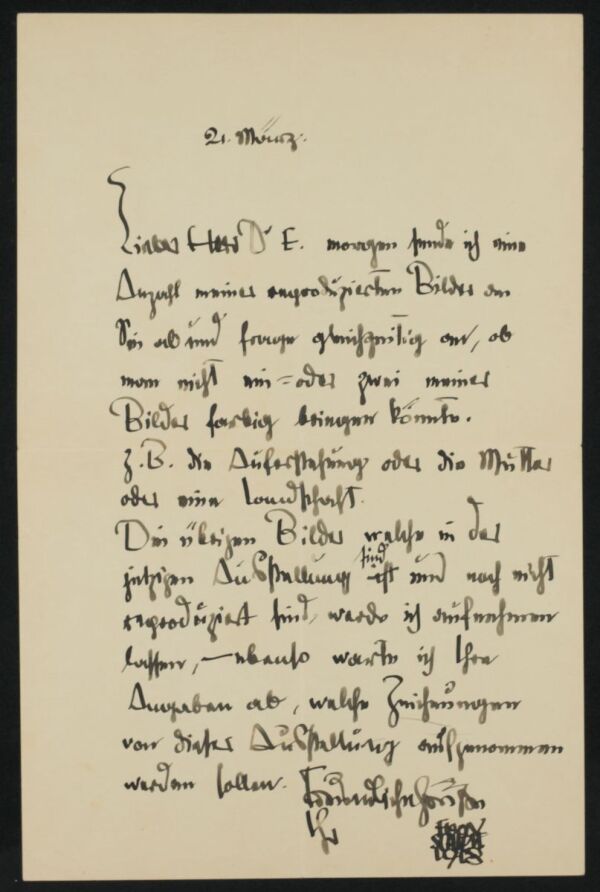 21. März.
Lieber Herr Dr E. morgen sende ich eine
Anzahl meiner reproduzierten Bilder an
Sie ab und frage gleichzeitig an, ob
man nicht ein = oder zwei meiner
Bilder farbig bringen könnte.
Z.B. die Auferstehung oder die Mutter
oder eine Landschaft.
Die übrigen Bilder welche in der
jetzigen Ausstellung sind ist und noch nicht
reproduziert sind, werde ich aufnehmen
lassen, – ebenso warte ich Ihre
Angaben ab, welche Zeichnungen
von dieser Ausstellung aufgenommen
werden sollen. Freundliche Grüsse
Ihr
1918